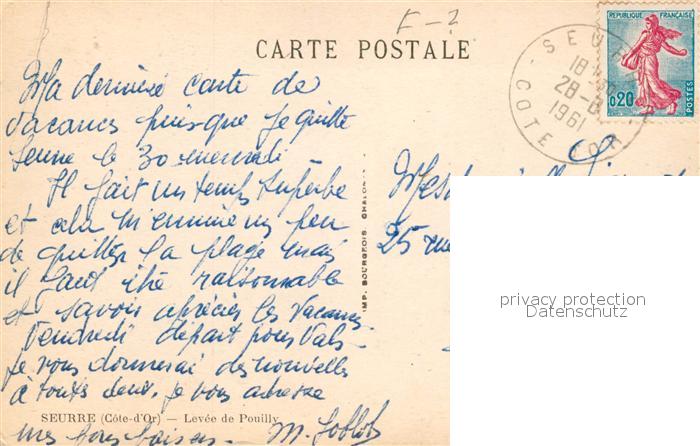 CARTE POSTALE
REPUBLIQUE FRANÇAISE
0,20
POSTES
SEURRE
18
28-8
1961
COTE D'OR
Ma dernière carte de
vacances puisque je quitte
Seurre le 30 mercredi
Il fait un temps superbe
et cela m'ennuie un peu
de quitter la plage mais
il faut être raisonnable
et savoir apprécier les vacances
Vendredi départ pour Vals
je vous donnerai des nouvelles
à toutes deux. je vous adresse
mes bons baisers.
SEURRE (Côte-d'Or) — Levée de Pouilly
IMP. BOURGEOIS CHALON
25 rue
privacy protection
Datenschutz